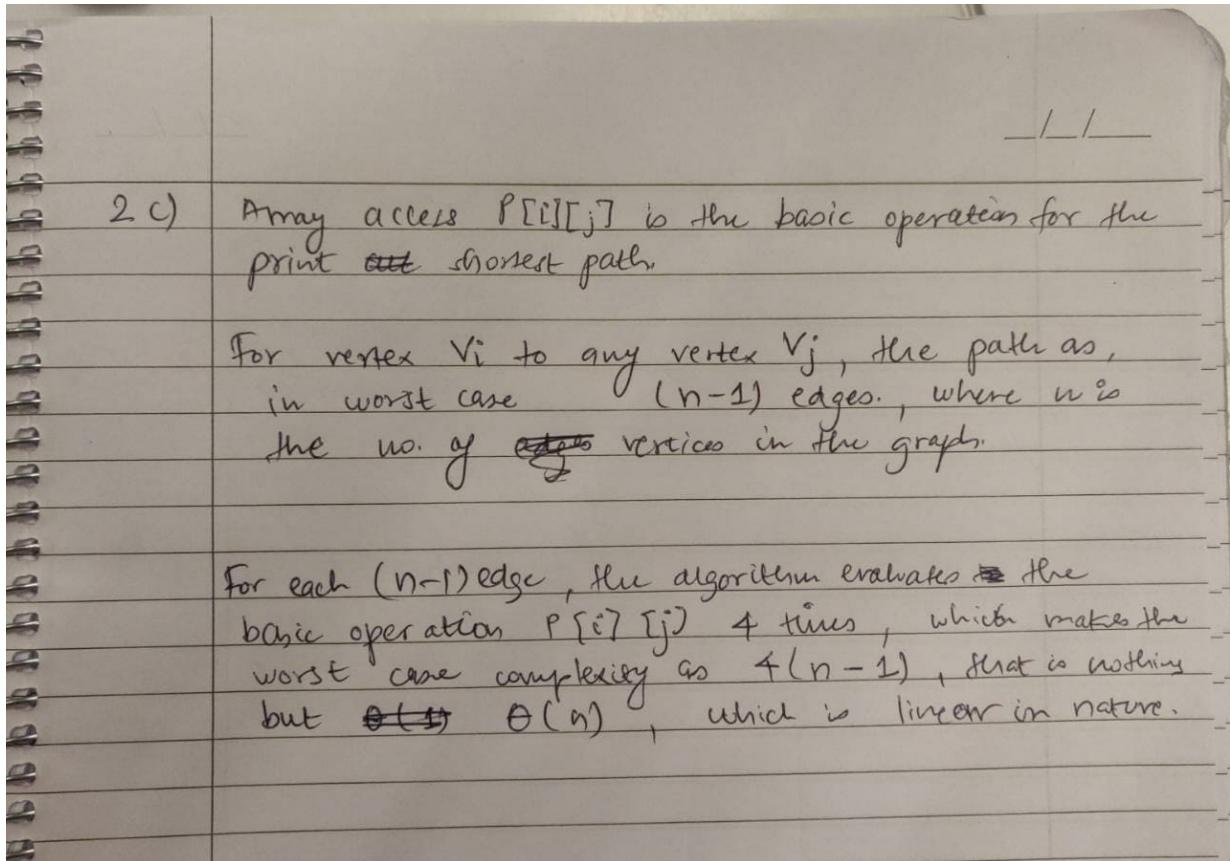 _/_/__
2 c) Array access P[i][j] is the basic operation for the
print out shortest path.
For vertex Vi to any vertex Vj, the path as,
in worst case (n-1) edges., where n is
the no. of edges vertices in the graph.
For each (n-1) edge, the algorithm evaluates the
basic operation P[i][j] 4 times, which makes the
worst case complexity as 4(n-1), that is nothing
but θ(1) θ(n), which is linear in nature.